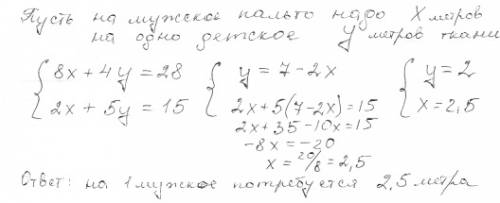 Пусть на мужское пальто надо X метров
на одно детское y метров ткани
{ 8x + 4y = 28
2x + 5y = 15
{ y = 7 - 2x
2x + 5(7 - 2x) = 15
2x + 35 - 10x = 15
-8x = -20
x = 20/8 = 2,5
{ y = 2
x = 2,5
Ответ: на 1 мужское потребуется 2,5 метра